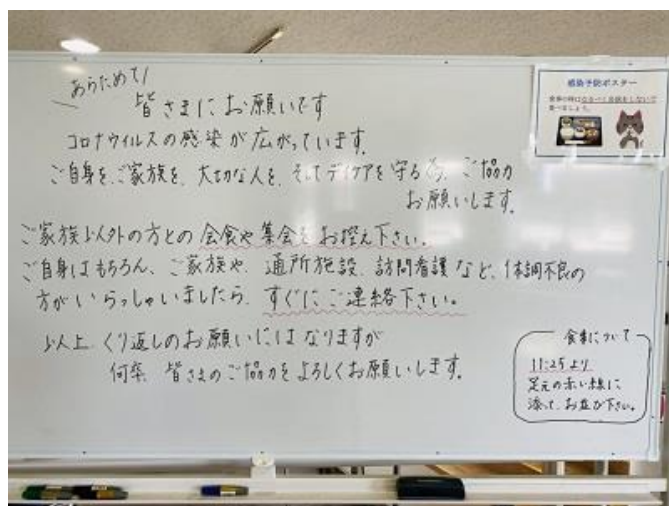 あらためて/
皆さまにお願いです
コロナウイルスの感染が広がっています。
ご自身を、ご家族を、大切な人を、そしてデイケアを守る為、ご協力
お願いします。
ご家族以外の方との会食や集会をお控え下さい。
ご自身はもちろん、ご家族や、通所施設、訪問看護など、体調不良の
方がいらっしゃいましたら、すぐにご連絡下さい。
以上、くり返しのお願いにはなりますが
何卒、皆さまのご協力をよろしくお願いします。
感染予防ポスター
食事の時はなるべく会話をしないで
食べましょう。
食事について
11:25より
足元の赤い線に
添って、お並び下さい。